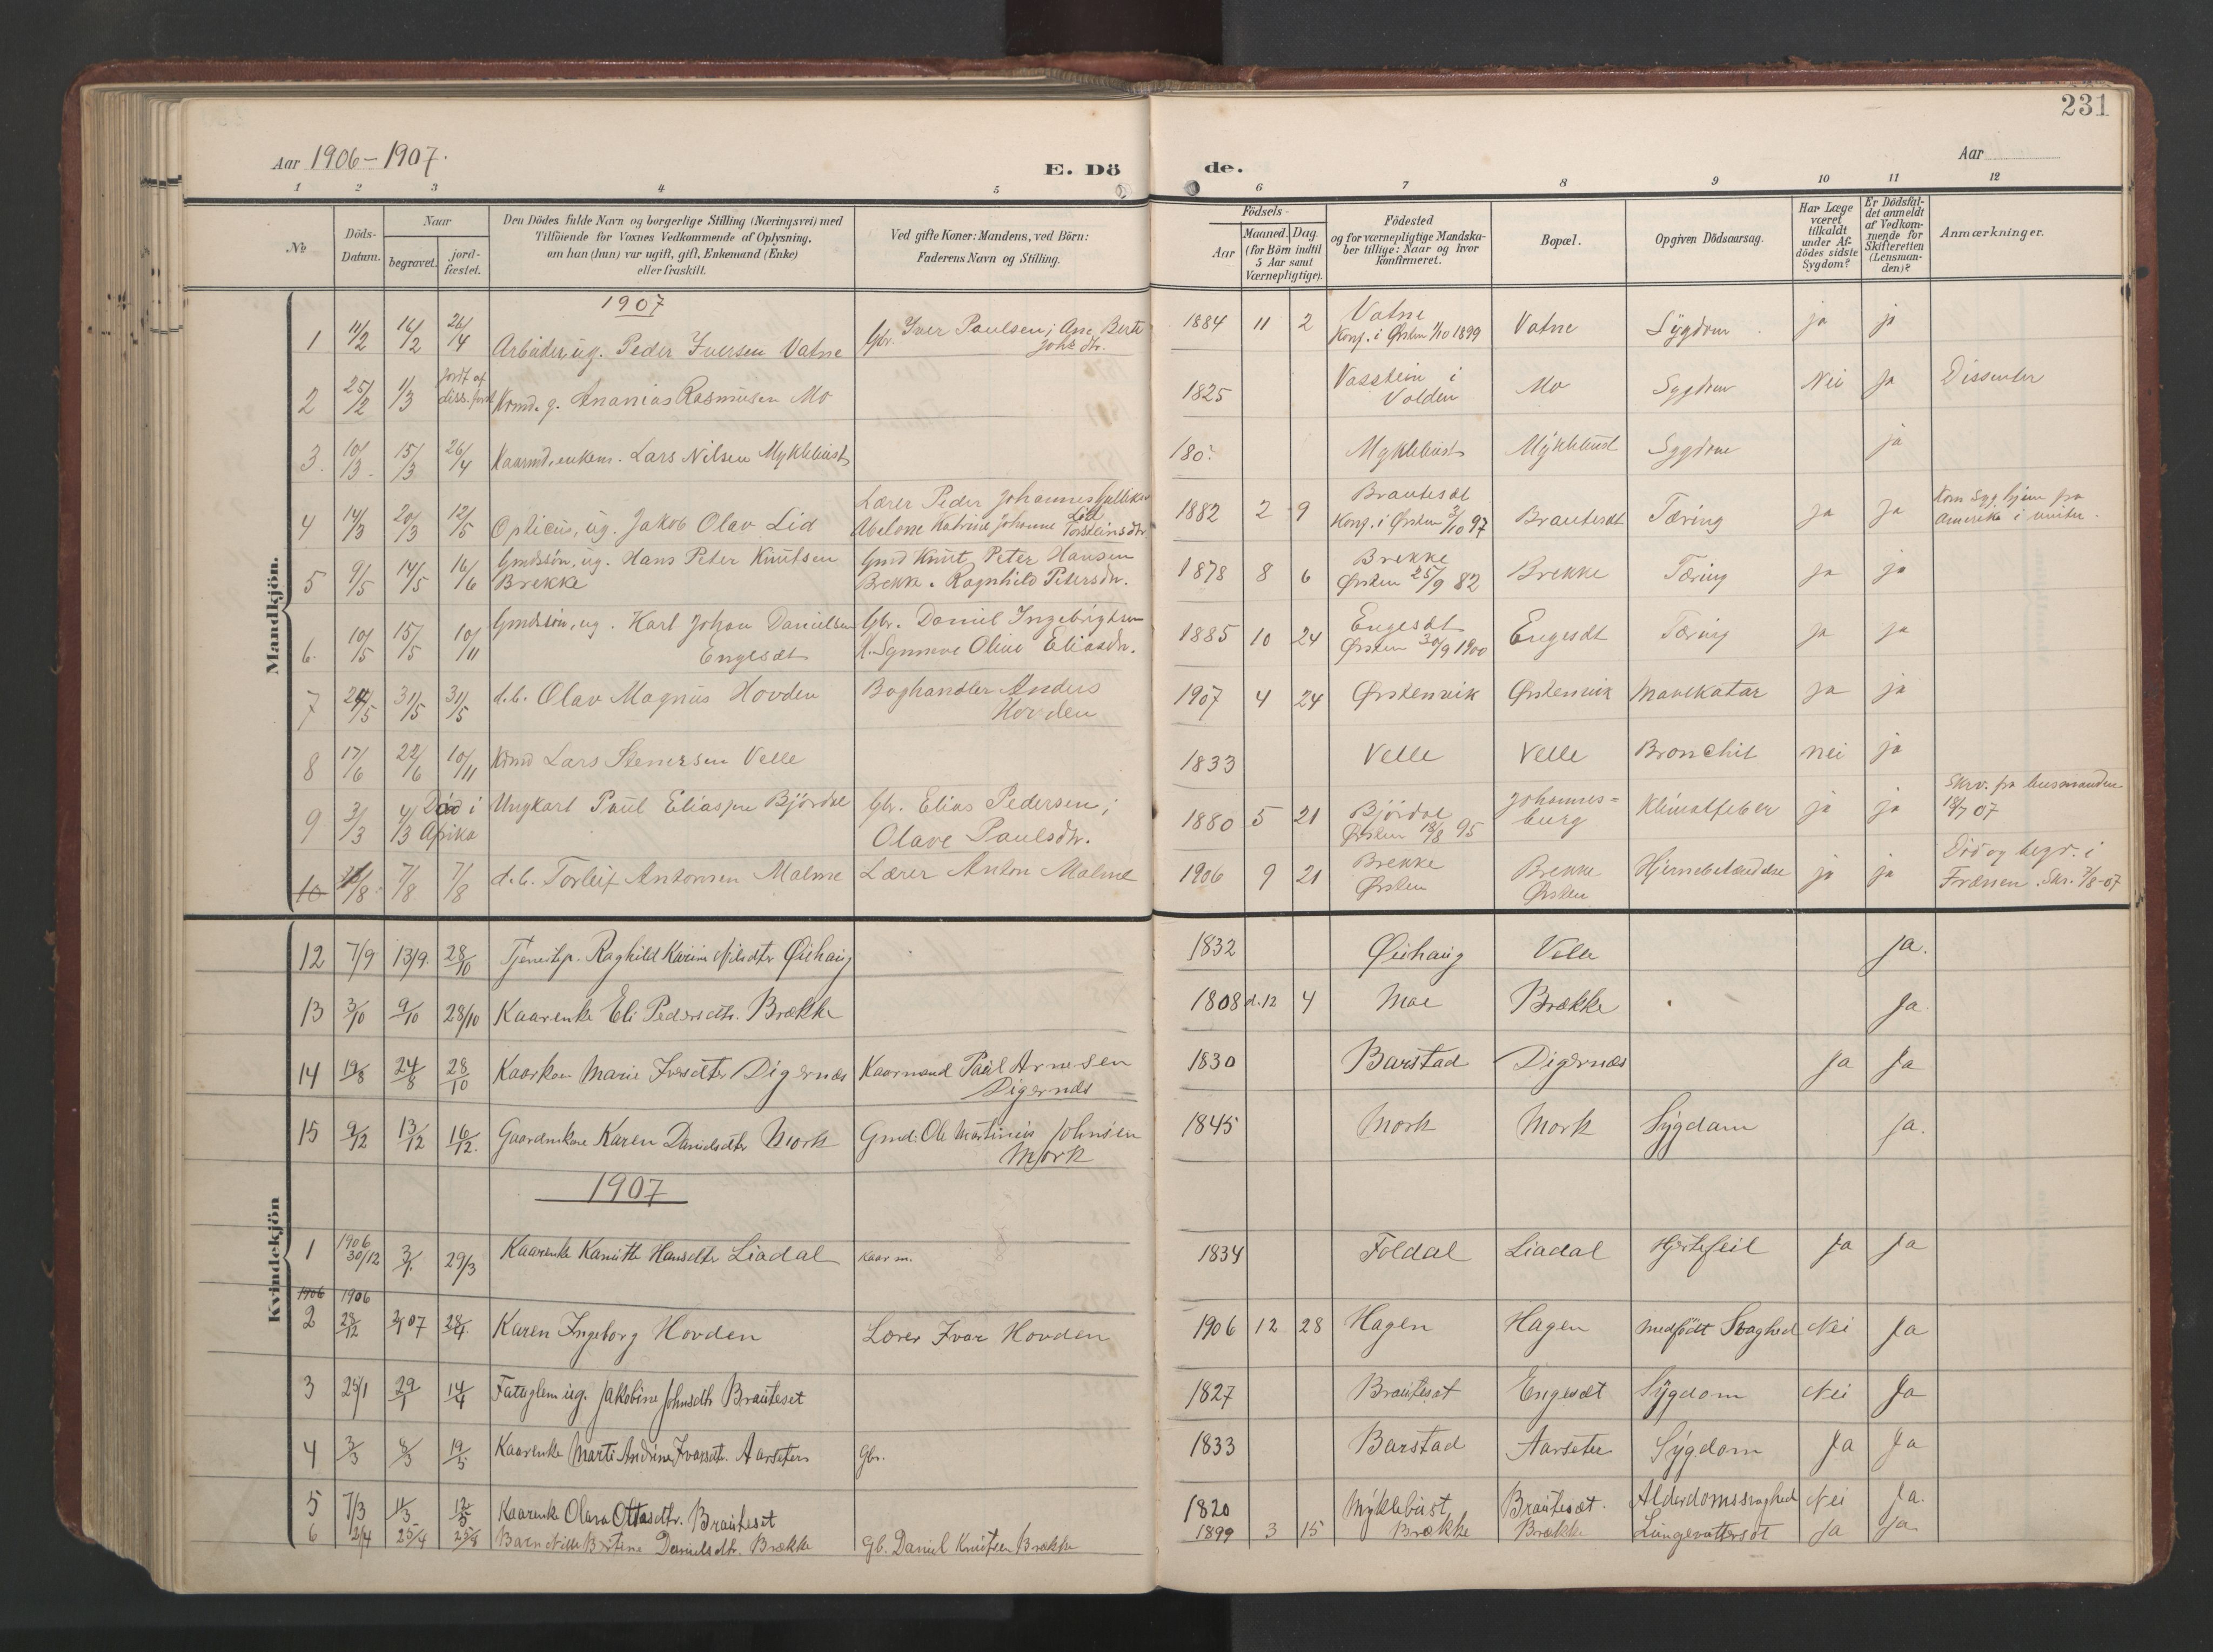 231
Aar 1906-1907.
E. Dö de.
Aar
1 2 3 4 5 6 7 8 9 10 11 12
No
Döds-Datum.
Naar
begravet.
jord-fæstet.
Den Dödes fulde Navn og borgerlige Stilling (Næringsvei) med
Tilföiende for Voxnes Vedkommende af Oplysning,
om han (hun) var ugift, gift, Enkemand (Enke)
eller fraskilt.
Ved gifte Koner: Mandens, ved Börn:
Faderens Navn og Stilling.
Födsels-
Aar
Maaned. Dag.
(for Börn indtil
5 Aar samt
Værnepligtige).
Födested
og for værnepligtige Mandska-
ber tillige: Naar og hvor
konfirmeret.
Bopæl.
Opgiven Dödsaarsag.
Har Læge
været
tilkaldt
under Af-
dödes sidste
Sygdom?
Er Dödsfal-
det anmeldt
af Vedkom-
mende for
Skifteretten
(Lensman-
den)?
Anmærkninger.
Mandkjön.
1907
1 11/2 16/2 26/4 Arbeider, ug. Peder Iversen Vatne Gbr. Iver Paulsen; Ane Berte Johs dtr. 1884 11 2 Vatne Konf. i Ørsten 1/10 1899 Vatne Sygdom ja ja
2 25/2 1/3 jordf. af diss. prest Krmd. g. Ananias Rasmusen Mo 1825 Vasstein i Volden Mo Sygdom Nei Ja Dissenter
3. 10/3. 15/3 26/4 Kaarmd, enkem. Lars Nilsen Myklebust 180. Myklebust Myklebust Sygdom ja
4 14/3 20/3 12/5 Opticus, ug. Jakob Olav Lid Lærer Peder Johannes Lid Abelone Katrine Johanne Torsteinsdtr 1882 2 9 Brautesæt Konf. i Ørsten 3/10 97 Brautesæt Tæring Ja Ja Kom syg hjem fra Amerika i vinter.
5 9/5 14/5 16/6 Gmdssön, ug. Hans Peter Knutsen Brekke Gmd Knut Peter Hansen Brekke. Ragnhild Petersdtr. 1878 8 6 Brekke Ørsten 25/9 82 Brekke Tæring ja ja
6. 10/5 15/5 10/11 Gmdssön, ug. Karl Johan Danielsen Engesæt Gbr. Daniel Ingebrigtsen K. Synnøve Oline Eliasdtr. 1885 10 24 Engesæt Ørsten 30/9 1900 Engesæt Tæring ja ja
7 24/5 31/5 31/5 d.b. Olav Magnus Hovden Boghandler Anders Hovden 1907 4 24 Ørstenvik Ørstenvik Mavekatar ja ja
8 17/6 22/6 10/11 Krmd Lars Stenersen Velle 1833 Velle Velle Bronchit nei ja
9 3/3 4/3 Død i Afrika Ungkarl Paul Eliassen Bjørdal Gbr. Elias Pedersen; Olave Paulsdtr. 1880 5 21 Bjørdal Ørsten 18/8 95 Johannes=burg Klimatfeber ja ja Skrv. fra lensmanden 18/7 07
10 7/8 7/8 d.b. Torleif Antonsen Malme Lærer Anton Malme 1906 9 21 Brekke Ørsten Brekke Ørsten Hjernebetændelse ja ja Död og begr. i Frænen. Skr. 7/8-07
Kvindekjön
12 7/9 13/9 28/10 Tjenestep. Raghild Karine Nilsdtr Øihaug 1832 Øihaug Velle ja.
13 3/10 9/10 28/10 Kaarenke Eli Pedersdtr. Brække 1808 d. 12 4 Moe Brække Ja
14 19/8 24/8 28/10 Kaarkone Marie Iversdtr Digernæs Kaarmand Paul Arnesen Digernæs 1830 Barstad Digernæs Ja Ja
15 9/12 13/12 16/12. Gaardmkone Karen Danielsdtr Mork Gmd: Ole Martinius Johnsen Mork 1845 Mork Mork Sygdom ja.
1907
1 1906 30/12 3/1. 29/3 Kaarenke Kanutte Hansdtr Liadal Kaarm. 1834 Foldal Liadal Hjertefeil Ja Ja
1906 1906
2 28/12 3/1 07 28/4. Karen Ingeborg Hovden Lærer Ivar Hovden 1906 12 28 Hagen Hagen Medfödt Svaghed Nei Ja
3 25/1 29/1 14/4 Fatyglem ug. Jakobine Johnsdtr Brauteset 1827 Brautesæt Engesæt Sygdom Nei Ja
4 3/3 8/3 19/5 Kaarenke Marte Andrine Ivarsdtr. Aarseter Gbr. 1833 Barstad Aarseter Sygdom Ja Ja
5 7/3 11/3 12/5 Kaarenke Olava Ottosdtr. Brauteset 1820 Myklebust Brautesæt. Alderdomssvaghed Nei Ja.
6 21/4 25/4 25/8 Barn Bertine Danielsdtr. Brække Gb. Daniel Knutsen Brække 1899 3 15 Brække Brække Lungevattersot Ja Ja